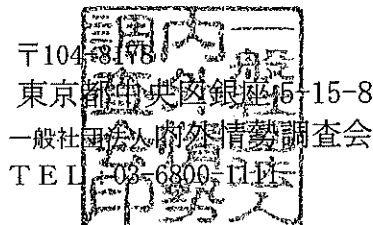 〒104-8178
東京都中央区銀座5-15-8
一般社団法人内外情勢調査会
TEL 03-6800-1111